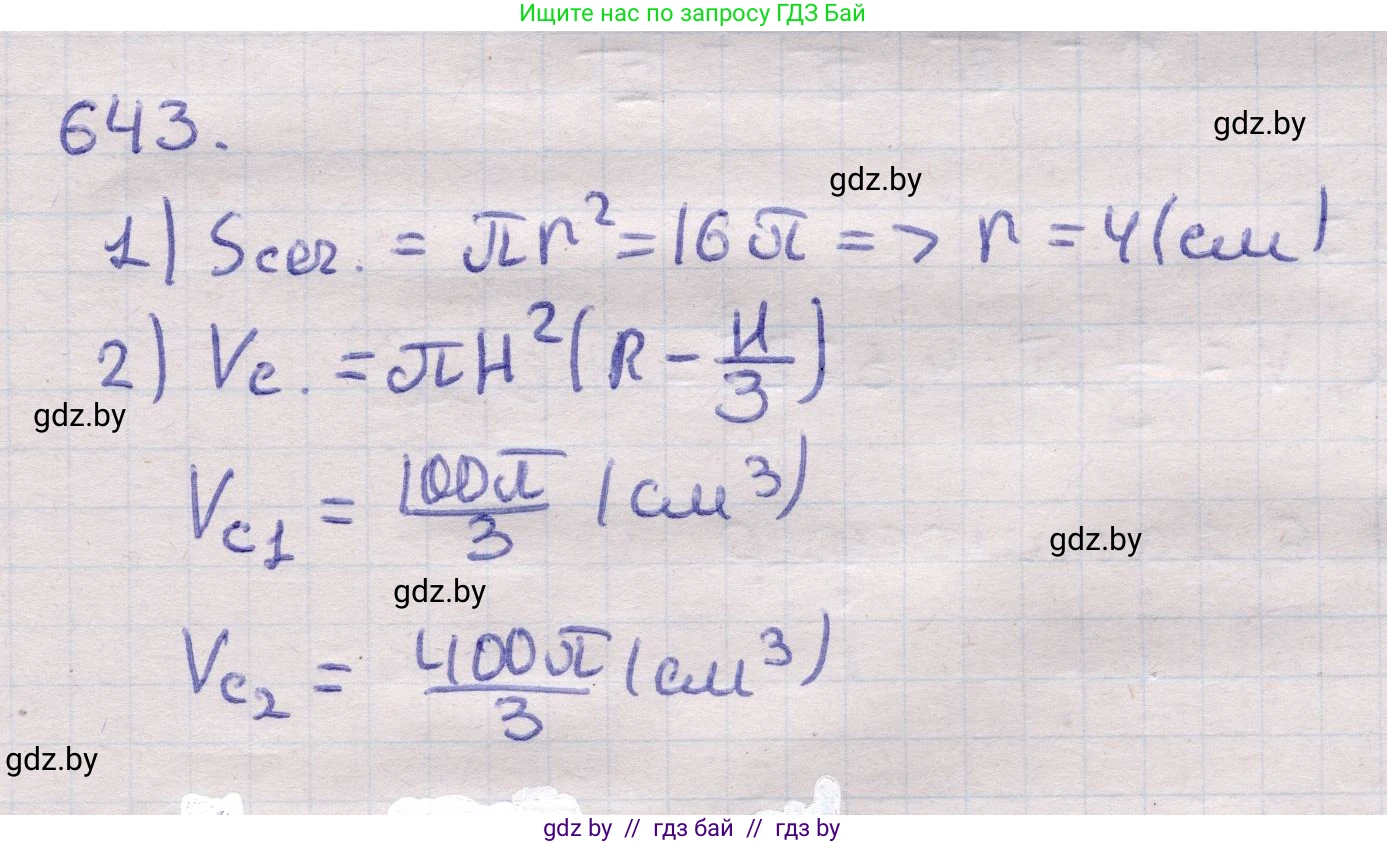 Ищите нас по запросу ГДЗ Бай
643.
gdz.by
gdz.by
1) Sсег. = πr² = 16π => r = 4 (см)
2) Vс. = πH²(R - H/3)
gdz.by
Vс1 = 100π/3 (см³)
gdz.by
gdz.by
Vс2 = 400π/3 (см³)
gdz.by
gdz by // гдз бай // гдз by